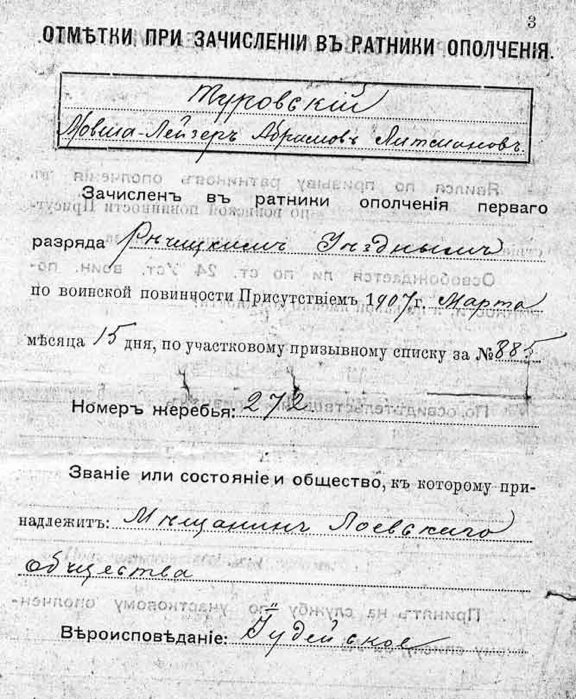 3
ОТМѢТКИ ПРИ ЗАЧИСЛЕНІИ ВЪ РАТНИКИ ОПОЛЧЕНІЯ.
Туровскій
Мовша-Лейзеръ Абрамовъ Литмановъ.
Зачисленъ въ ратники ополченія перваго
разряда Рѣчицкимъ Уѣзднымъ
по воинской повинности Присутствіемъ 1907 г. Марта
мѣсяца 15 дня, по участковому призывному списку за № 885
Номеръ жеребья: 272
Званіе или состояніе и общество, къ которому при-
надлежитъ: Мѣщанинъ Лоевскаго
общества
Вѣроисповѣданіе: Іудейское